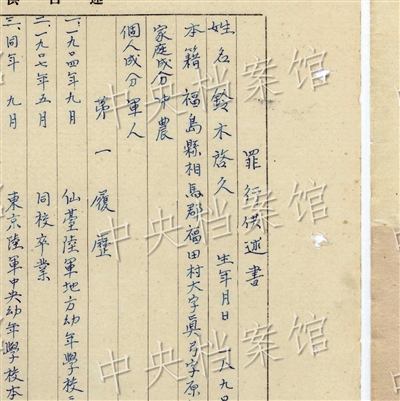 罪行供述書
姓名 鈴木啓久 生年月日 一八九
本籍 福島縣相馬郡福田村大字真弓字原
家庭成分 中農
個人成分 軍人
第一 履歷
一、一九〇四年九月 仙臺陸軍地方幼年學校
二、一九〇七年五月 同校卒業
三、同年 九月 東京陸軍中央幼年學校本
中央档案馆
中央档案馆
中央档案馆
中央档案馆